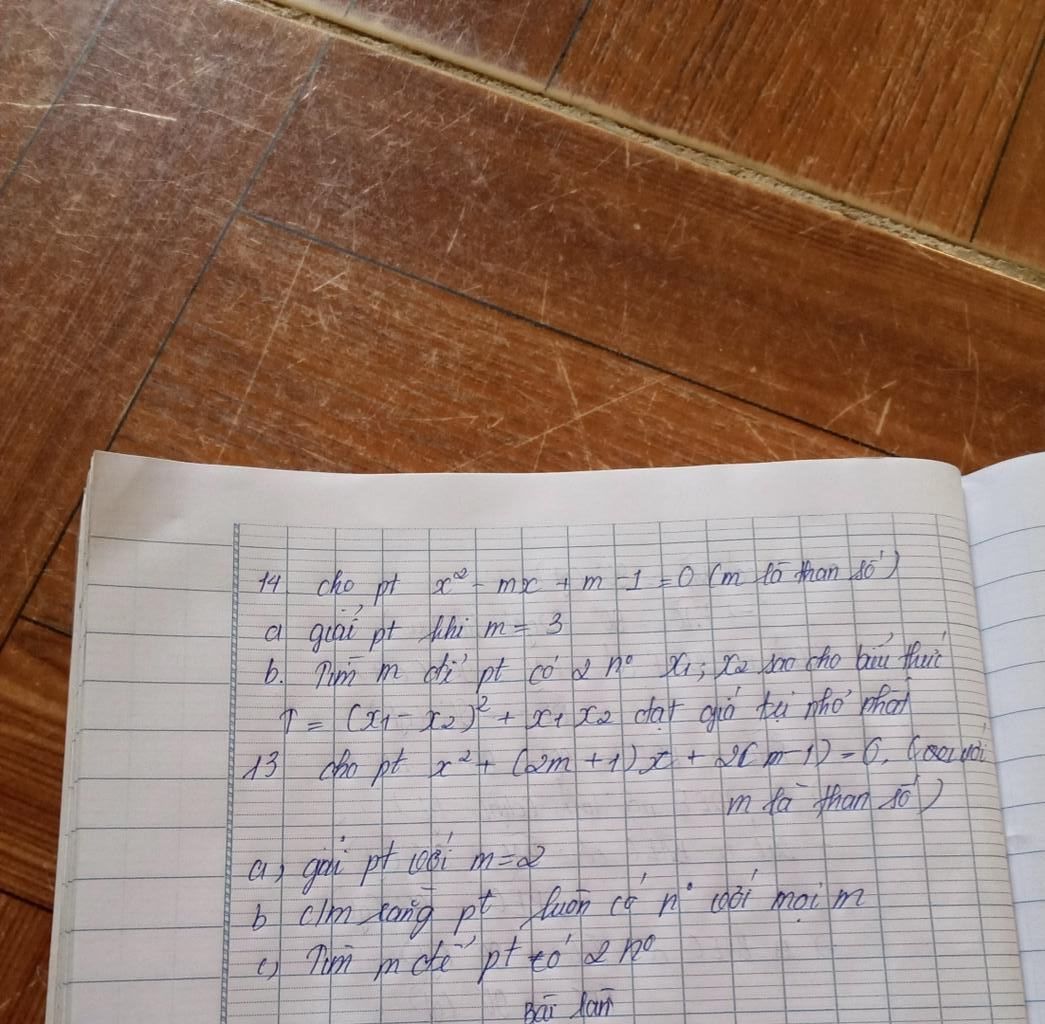 14 cho pt x² - mx + m - 1 = 0 (m là than số)
a giải pt khi m = 3
b. Tìm m để pt có 2 n° x₁; x₂ sao cho biểu thức
T = (x₁ - x₂)² + x₁ x₂ đạt giá trị nhỏ nhất
13 cho pt x² + (2m + 1) x + 2(m - 1) = 0. (với
m là than số)
a, giải pt với m = 2
b c/m rằng pt luôn có n° với mọi m
c, Tìm m để pt có 2 n°
Bài làm